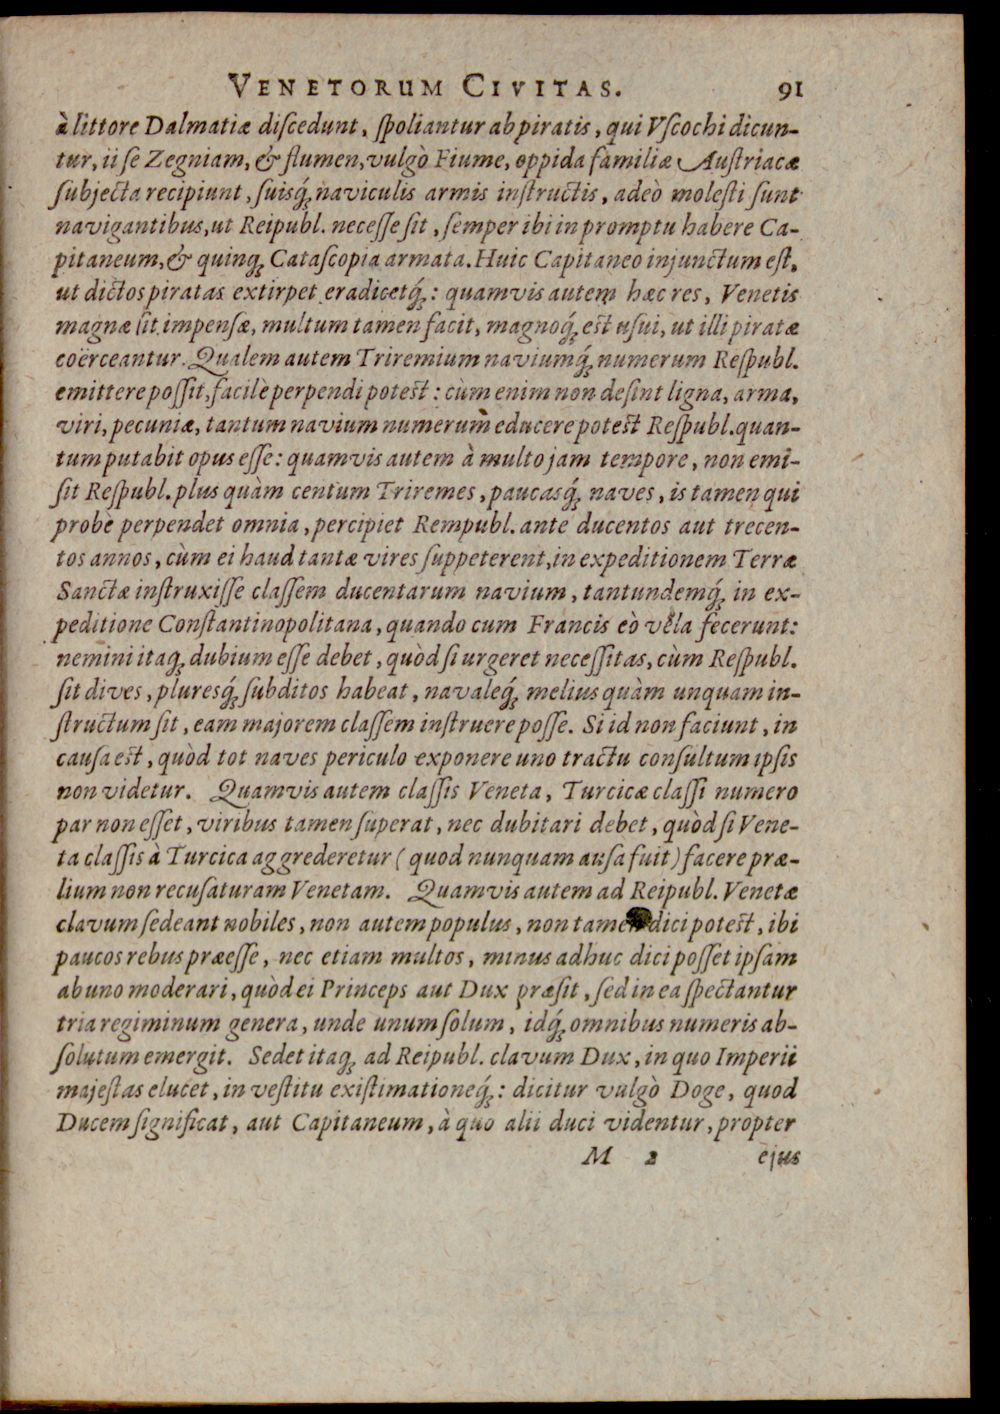 VENETORUM CIVITAS. 91
à littore Dalmatiæ diſcedunt, ſpoliantur ab piratis, qui Vſcochi dicun-
tur, ii ſe Zegniam, & flumen, vulgò Fiume, oppida familiæ Auſtriacæ
ſubjecta recipiunt, ſuisq́; naviculis armis inſtructis, adeò moleſti ſunt
navigantibus, ut Reipubl. neceſſe ſit, ſemper ibi in promptu habere Ca-
pitaneum, & quinq; Cataſcopia armata. Huic Capitaneo injunctum eſt,
ut dictos piratas extirpet eradicetq́;: quamvis autem hæc res, Venetis
magnæ ſit impenſæ, multum tamen facit, magnoq́; eſt uſui, ut illi piratæ
coërceantur. Qualem autem Triremium naviumq́; numerum Reſpubl.
emittere poſſit, facilè perpendi poteſt: cùm enim non deſint ligna, arma,
viri, pecuniæ, tantum navium numerum educere poteſt Reſpubl. quan-
tum putabit opus eſſe: quamvis autem à multo jam tempore, non emi-
ſit Reſpubl. plus quàm centum Triremes, paucasq́; naves, is tamen qui
probè perpendet omnia, percipiet Rempubl. ante ducentos aut trecen-
tos annos, cùm ei haud tantæ vires ſuppeterent, in expeditionem Terræ
Sanctæ inſtruxiſſe claſſem ducentarum navium, tantundemq́; in ex-
peditione Conſtantinopolitana, quando cum Francis eò vela fecerunt:
nemini itaq; dubium eſſe debet, quòd ſi urgeret neceſſitas, cùm Reſpubl.
ſit dives, pluresq́; ſubditos habeat, navaleq́; melius quàm unquam in-
ſtructum ſit, eam majorem claſſem inſtruere poſſe. Si id non faciunt, in
cauſa eſt, quòd tot naves periculo exponere uno tractu conſultum ipſis
non videtur. Quamvis autem claſſis Veneta, Turcicæ claſſi numero
par non eſſet, viribus tamen ſuperat, nec dubitari debet, quòd ſi Vene-
ta claſſis à Turcica aggrederetur (quod nunquam auſa fuit) facere præ-
lium non recuſaturam Venetam. Quamvis autem ad Reipubl. Venetæ
clavum ſedeant nobiles, non autem populus, non tamen dici poteſt, ibi
paucos rebus præeſſe, nec etiam multos, minus adhuc dici poſſet ipſam
ab uno moderari, quòd ei Princeps aut Dux præſit, ſed in ea ſpectantur
tria regiminum genera, unde unum ſolum, idq́; omnibus numeris ab-
ſolutum emergit. Sedet itaq; ad Reipubl. clavum Dux, in quo Imperii
majeſtas elucet, in veſtitu exiſtimationeq́;: dicitur vulgò Doge, quod
Ducem ſignificat, aut Capitaneum, à quo alii duci videntur, propter
M 2 ejus